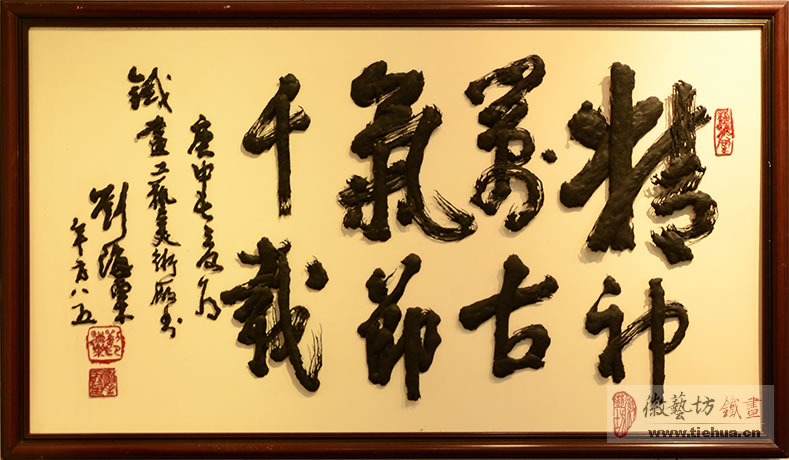 精神
萬古
氣節
千載
庚申
鐵畫工藝美術廠書
劉海粟
年方八五
徽藝坊鐵畫
www.tiehua.cn